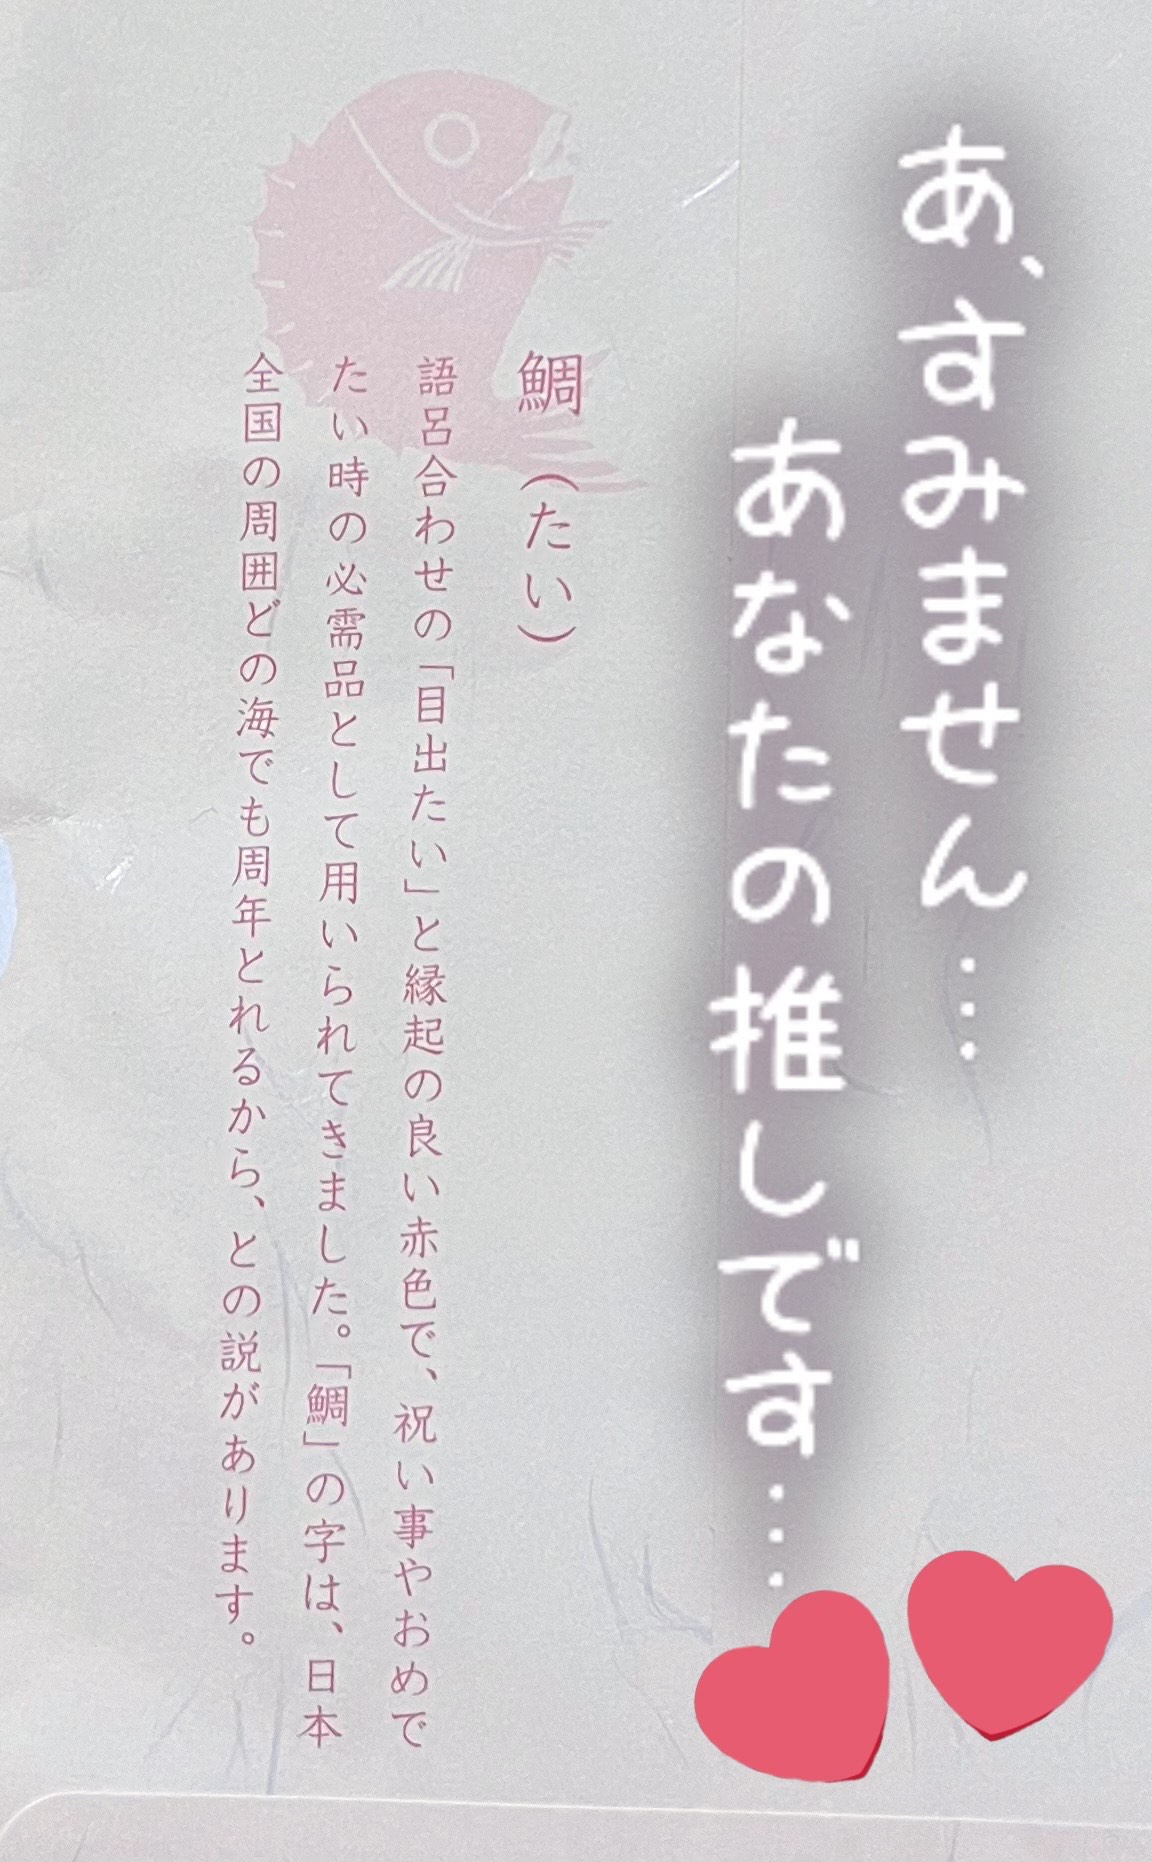 あ、すみません…
あなたの推しです…
鯛（たい）
語呂合わせの「目出たい」と縁起の良い赤色で、祝い事やおめで
たい時の必需品として用いられてきました。「鯛」の字は、日本
全国の周囲どの海でも周年とれるから、との説があります。